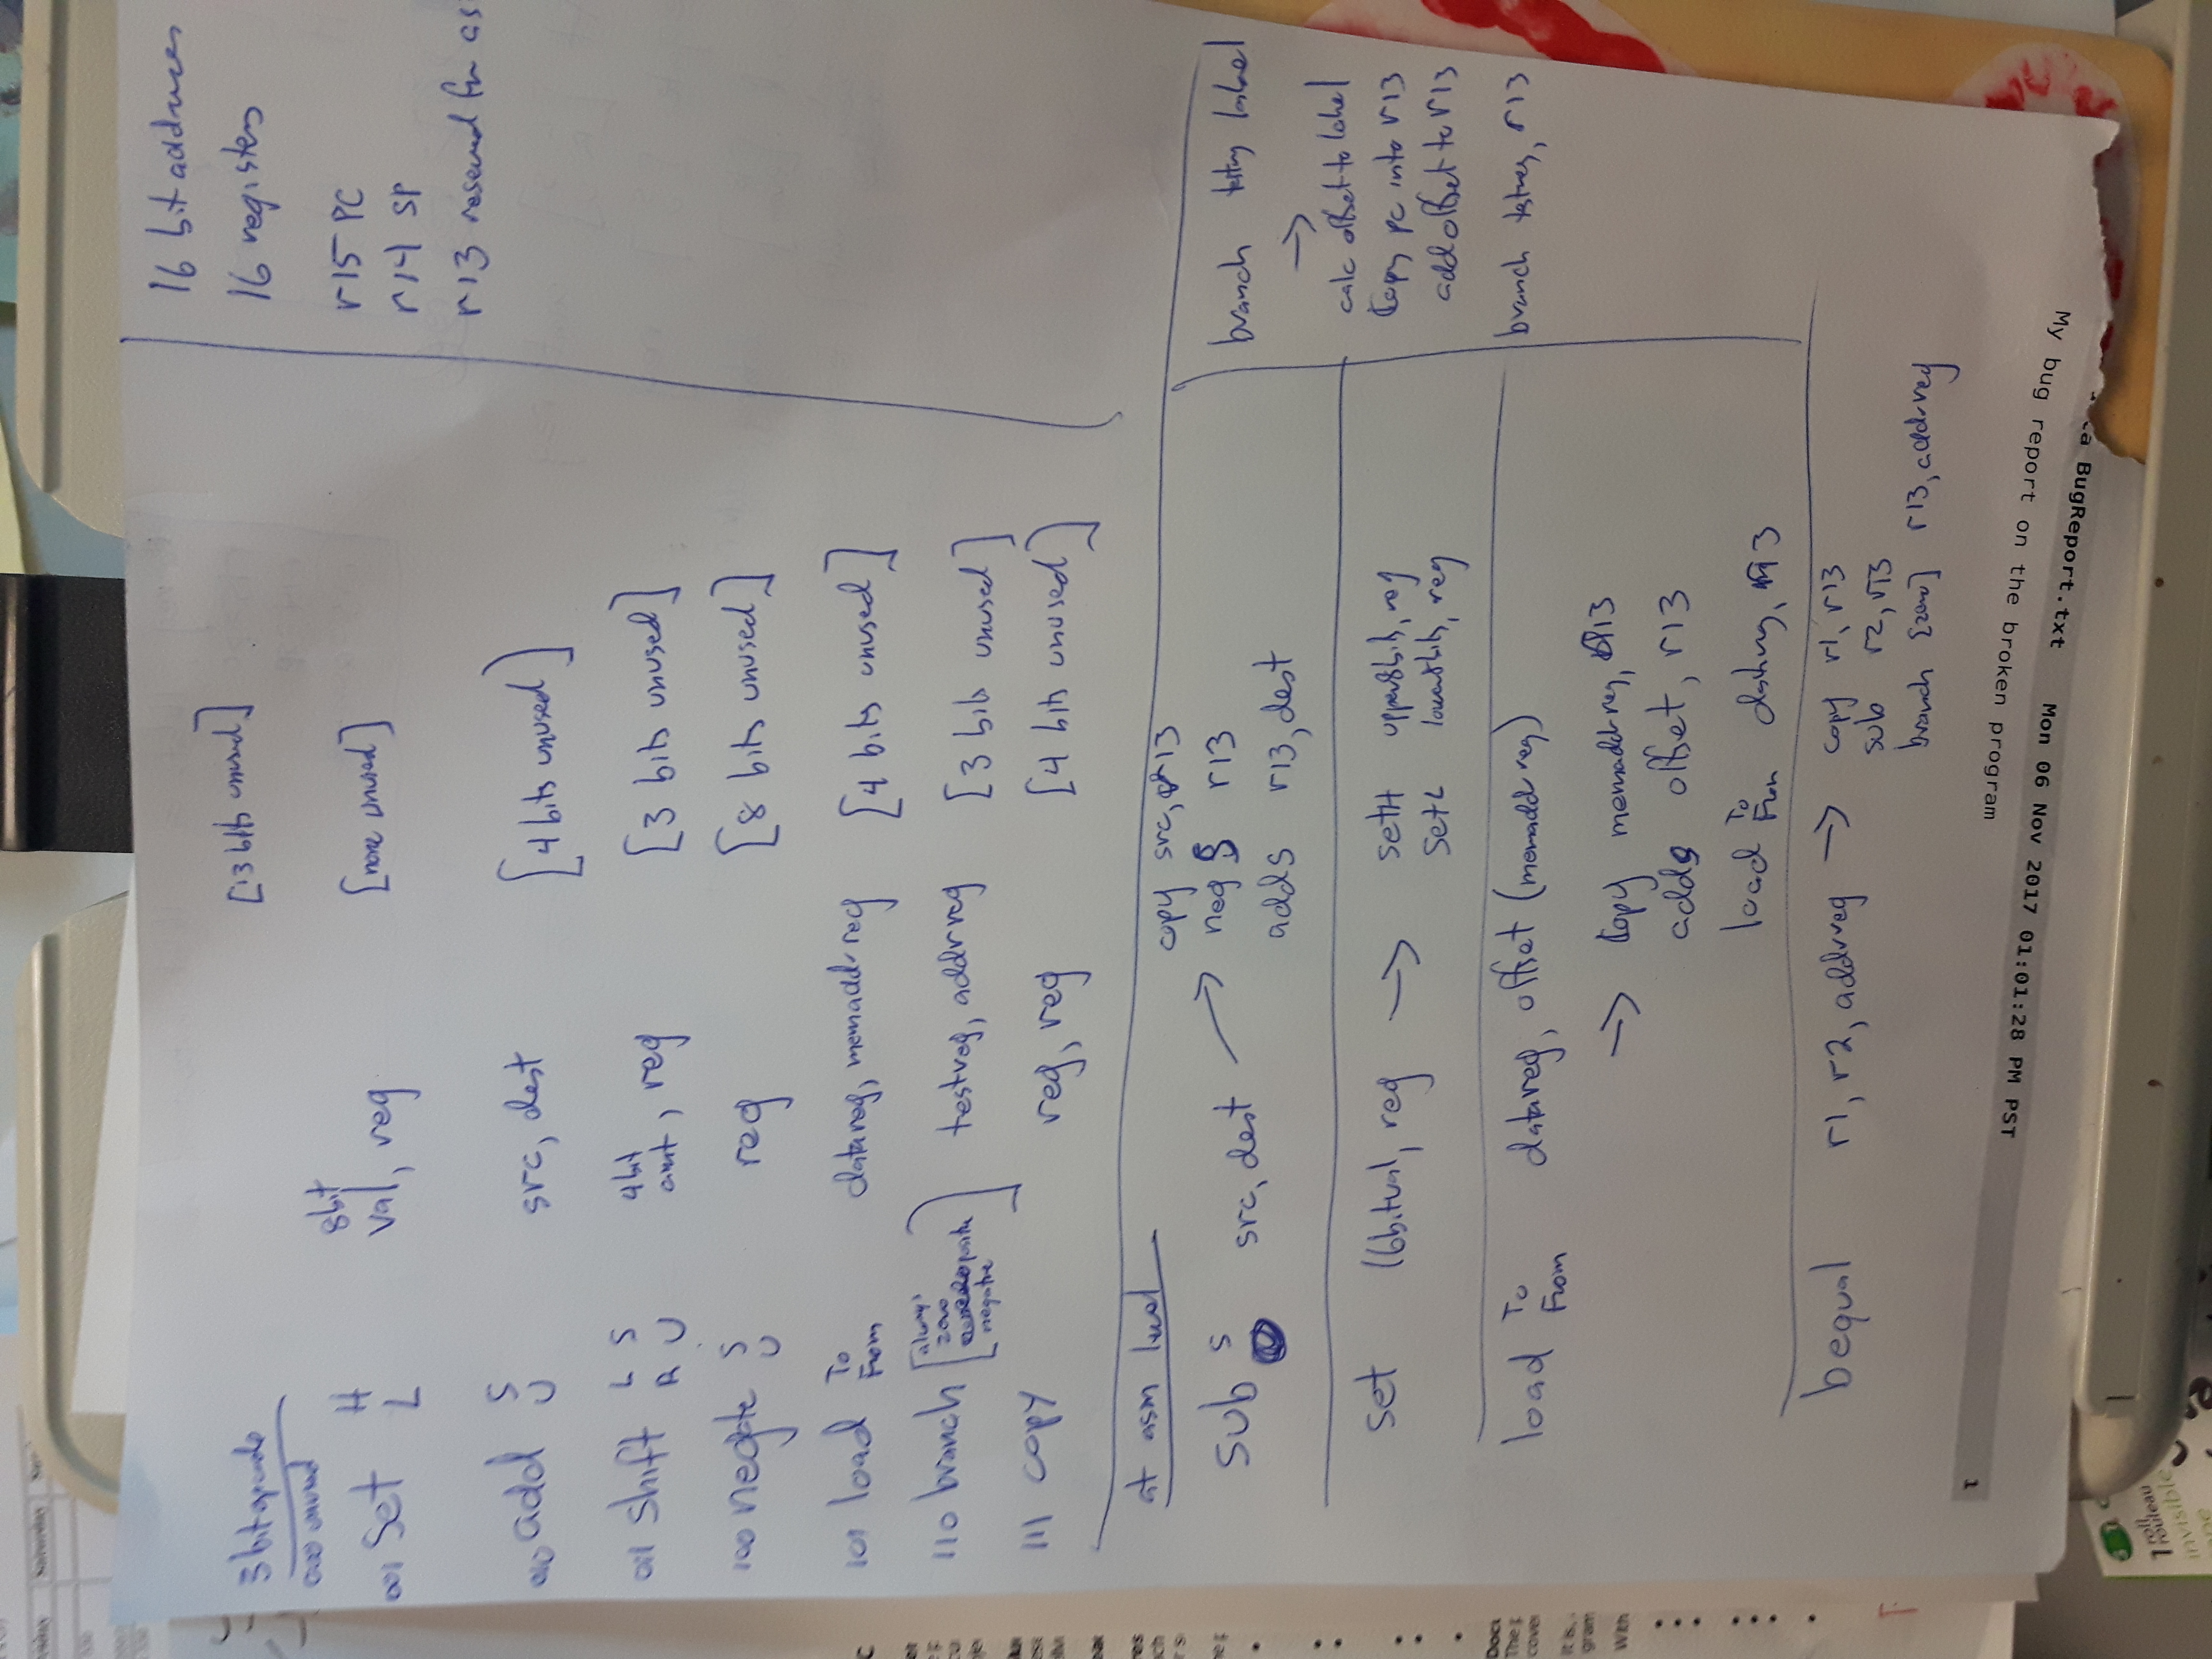 3 bit opcode
000 unused [13 bits unused]
001 Set H L 8bit val, reg [none unused]
010 add S U src, dest [4 bits unused]
011 Shift L R S U 4bit amt, reg [3 bits unused]
100 negate S U reg [8 bits unused]
101 load To From datareg, memaddr reg [4 bits unused]
110 branch [always zero positive negative] testreg, addrreg [3 bits unused]
111 copy reg, reg [4 bits unused]
16 bit addresses
16 registers
r15 PC
r14 SP
r13 reserved for as
at asm level
Sub S src, dest → copy src, r13
neg S r13
add S r13, dest
set 16bitval, reg → setH upper8bits, reg
setL lower8bits, reg
load To From datareg, offset (memaddr reg)
→ Copy memaddrreg, r13
add S offset, r13
load To From datareg, r13
bequal r1, r2, addrreg → copy r1, r13
sub r2, r13
branch [zero] r13, addrreg
branch testreg label
→
calc offset to label
Copy PC into r13
add offset to r13
branch testreg, r13
BugReport.txt Mon 06 Nov 2017 01:01:28 PM PST 1
My bug report on the broken program